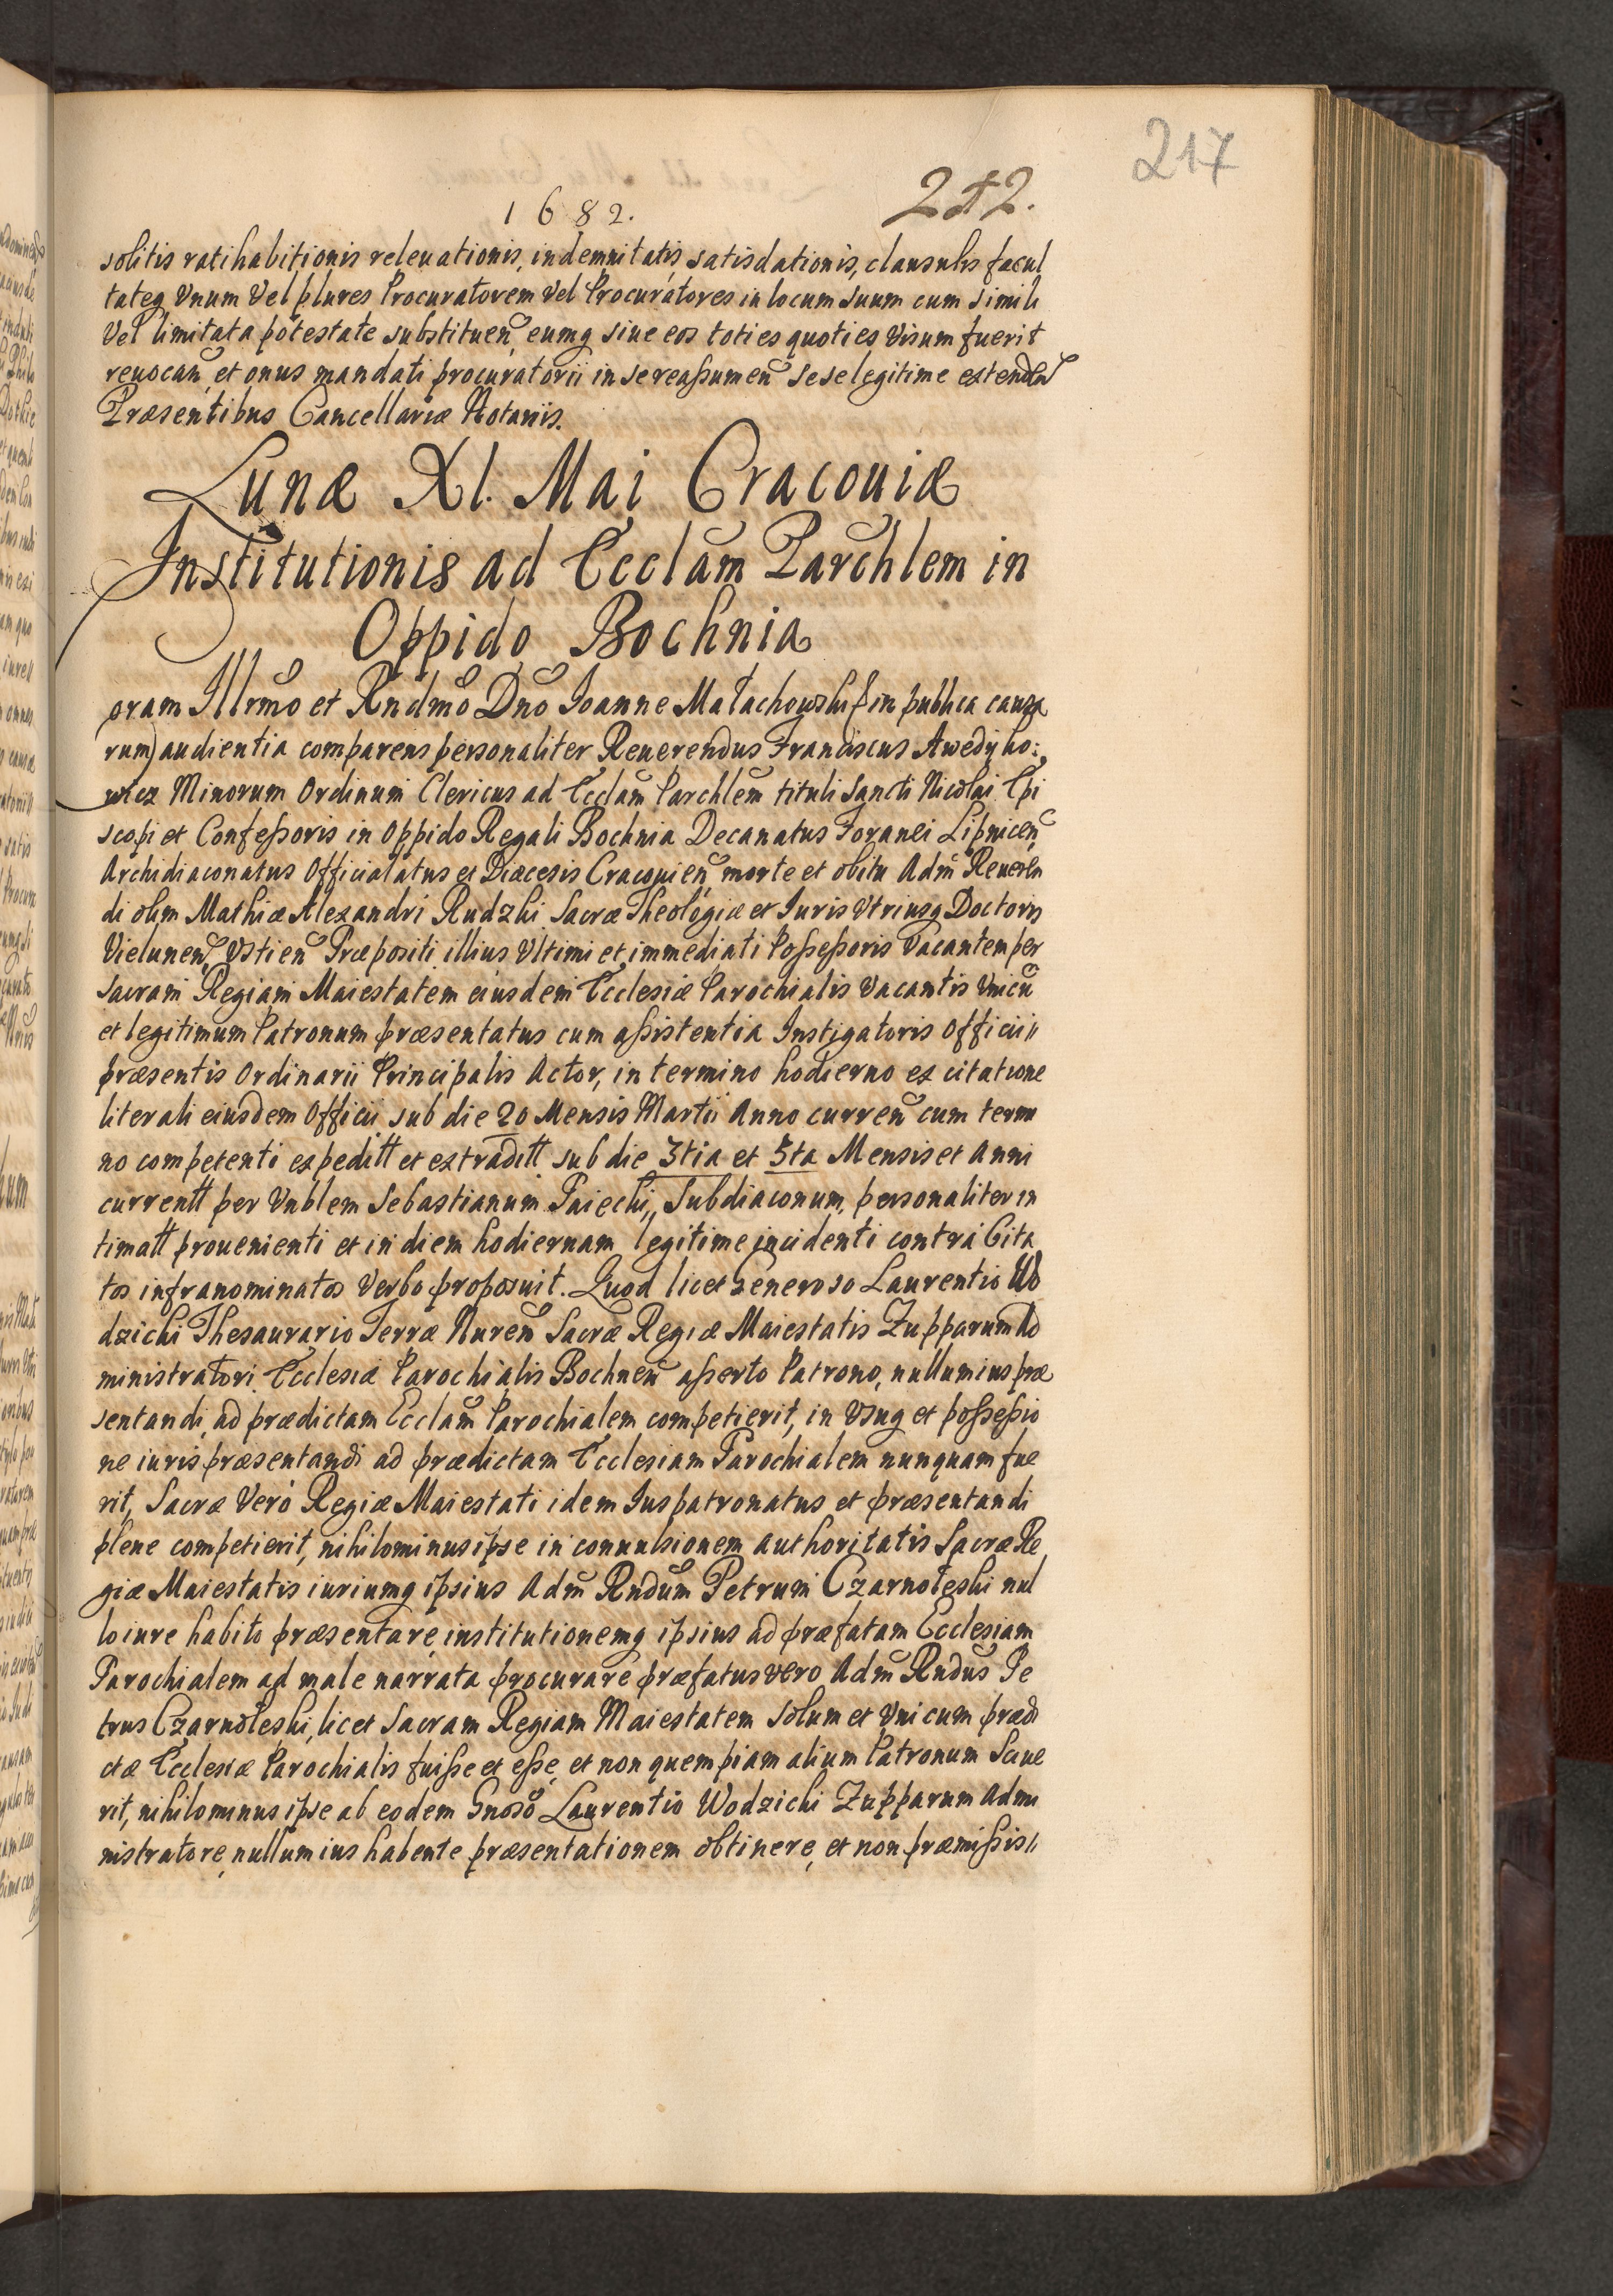 217
212.
1682.
solitis ratihabitionis releuationis, indemnitatis, satisdationis, clausulis facul
tateq Vnum Vel plures Procuratorem Vel Procuratores in locum suum cum simili
Vel limitata potestate substituen̄, eumq siue eos toties quoties Visum fuerit
reuocan̄, et onus mandati procuratorii in se reaßumen̄ sese legitime extenden̄
Præsentibus Cancellariæ Notariis.
Lunæ XI. Mai Cracouiæ
Institutionis ad Eccla͂m Parchlem in
Oppido Bochnia
oram Illrmo et Rndmo Dno Ioanne Małachowski (in publica causa
rum) audientia comparens personaliter Reuerendus Franciscus Awedyko:
wicz Minorum Ordinum Clericus ad Eccla͂m Parchlem tituli Sancti Nicolai Epi
scopi et Confeßoris in Oppido Regali Bochnia Decanatus Foranei Lipnicen̄
Archidiaconatus Officialatus et Diæcesis Cracouien̄, morte et obitu Adm Reueren
di olim Mathiæ Alexandri Rudzki Sacræ Theologiæ et Iuris Vtriusq Doctoris
Vielunen̄, Vstien̄ Præpositi illius Vltimi et immediati Poßeßoris Vacantem per
Sacram Regiam Maiestatem eiusdem Ecclesiæ Parochialis Vacantis Vnicu͂
et legitimum Patronum præsentatus cum aßistentia Instigatoris Officii
præsentis Ordinarii Principalis Actor, in termino hodierno ex citatione
literali eiusdem Officii sub die 20 Mensis Martii Anno curren̄ cum termi
no competenti expeditt et extraditt sub die 3tia et 5ta Mensis et Anni
currentt per Vnblem Sebastianum Paiecki, Subdiaconum, personaliter in
timatt prouenienti et in diem hodiernam legitime incidenti contra Cita
tos infranominatos Verbo proposuit. Quod licet Generoso Laurentio Wo
dzicki Thesaurario Terræ Nuren̄ Sacræ Regiæ Maiestatis Zupparum Ad
ministratori Ecclesiæ Parochialis Bochnen̄ aßerto Patrono, nullum ius præ
sentandi, ad prædictam Eccla͂m Parochialem competierit, in Vsuq et poßeßio
ne iuris præsentandi ad prædictam Ecclesiam Parochialem nunquam fue
rit, Sacræ Veró Regiæ Maiestati idem Ius patronatus et præsentandi
plene competierit, nihilominus ipse in conuulsionem authoritatis Sacræ Re
giæ Maiestatis iuriumq ipsius Adm Rndum Petrum Czarnołeski nul
lo iure habito præsentare, institutionemq ipsius ad præfatam Ecclesiam
Parochialem ad male narrata procurare præfatus vero Adm Rndus Pe
trus Czarnołeski, licet Sacram Regiam Maiestatem Solum et Vnicum prædi
ctæ Ecclesiæ Parochialis fuiße et eße, et non quempiam alium Patronum Sciue
rit, nihilominus ipse ab eodem Gnoso Laurentio Wodzicki Zupparum Admi
nistratore, nullum ius habente præsentationem obtinere, et non præmißis